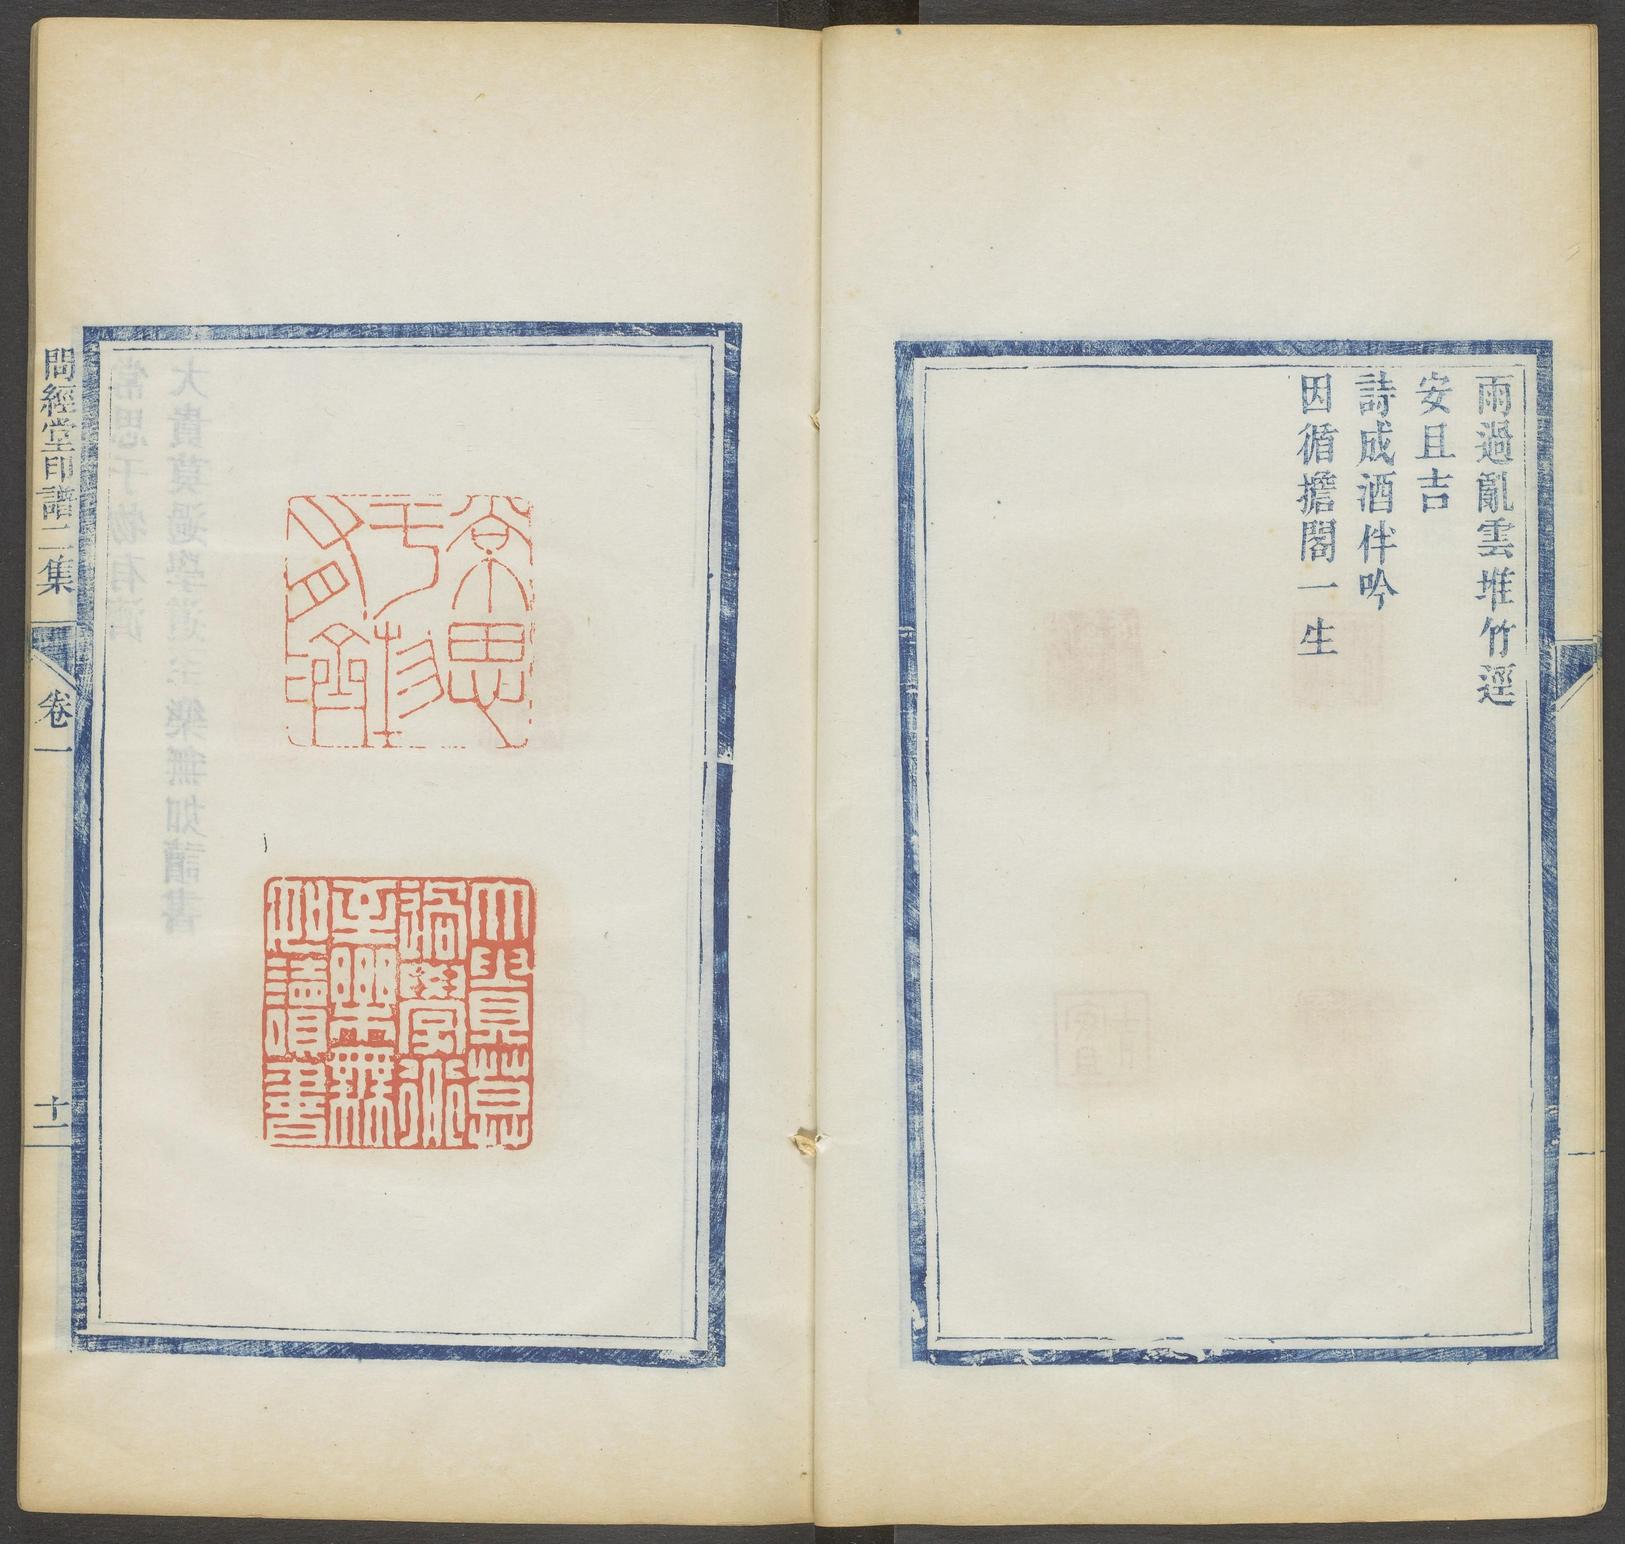 雨過亂雲堆竹逕
安且吉
詩成酒伴吟
因循擔閣一生
常思于物有濟
大貴莫過學道至樂無如讀書
問經堂印譜二集
卷一
十二